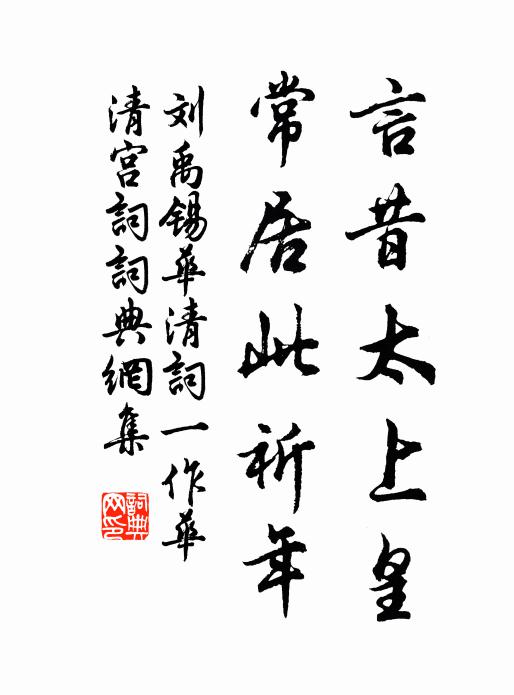 言昔太上皇
常居此祈年
刘禹锡華清詞一作華
清宫詞詞典網集
詞典網印